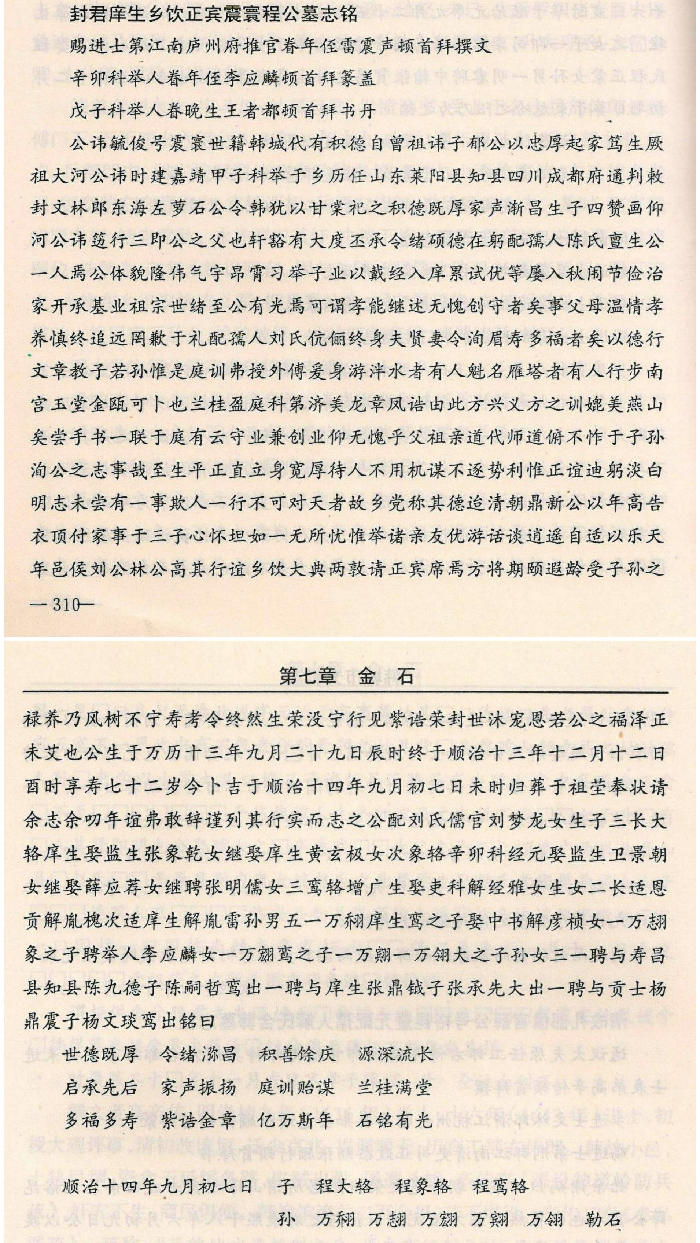 封君庠生乡饮正宾震寰程公墓志铭
赐进士第江南庐州府推官眷年侄雷震声顿首拜撰文
辛卯科举人眷年侄李应麟顿首拜篆盖
戊子科举人眷晚生王者都顿首拜书丹
公讳毓俊号震寰世籍韩城代有积德自曾祖讳子郁公以忠厚起家笃生厥
祖大河公讳时建嘉靖甲子科举于乡历任山东莱阳县知县四川成都府通判敕
封文林郎东海左萝石公令韩犹以甘棠祀之积德既厚家声渐昌生子四赞画仰
河公讳莚行三即公之父也轩豁有大度丕承令绪硕德在躬配孺人陈氏亶生公
一人焉公体貌隆伟气宇昂霄习举子业以戴经入庠累试优等屡入秋闱节俭治
家开承基业祖宗世绪至公有光焉可谓孝能继述无愧创守者矣事父母温情孝
养慎终追远罔歉于礼配孺人刘氏伉俪终身夫贤妻令洵眉寿多福者矣以德行
文章教子若孙惟是庭训弗授外傅爰身游泮水者有人魁名雁塔者有人行步南
宫玉堂金瓯可卜也兰桂盈庭科第济美龙章凤诰由此方兴义方之训媲美燕山
矣尝手书一联于庭有云守业兼创业仰无愧乎父祖亲道代师道俯不怍于子孙
洵公之志事哉至生平正直立身宽厚待人不用机谋不逐势利惟正谊迪躬淡白
明志未尝有一事欺人一行不可对天者故乡党称其德迨清朝鼎新公以年高告
衣顶付家事于三子心怀坦如一无所忧惟举诸亲友优游话谈逍遥自适以乐天
年邑侯刘公林公高其行谊乡饮大典两敦请正宾席焉方将期颐遐龄受子孙之
—310—
第七章 金 石
禄养乃风树不宁寿考令终然生荣没宁行见紫诰荣封世沐宠恩若公之福泽正
未艾也公生于万历十三年九月二十九日辰时终于顺治十三年十二月十二日
酉时享寿七十二岁今卜吉于顺治十四年九月初七日未时归葬于祖茔奉状请
余志余叨年谊弗敢辞谨列其行实而志之公配刘氏儒官刘梦龙女生子三长大
辂庠生娶监生张象乾女继娶庠生黄玄极女次象辂辛卯科经元娶监生卫景朝
女继娶薛应荐女继聘张明儒女三鸾辂增广生娶吏科解经雅女生女二长适恩
贡解胤槐次适庠生解胤雷孙男五一万翷庠生鸾之子娶中书解彦桢女一万翃
象之子聘举人李应麟女一万翧鸾之子一万翱一万翎大之子孙女三一聘与寿昌
县知县陈九德子陈嗣哲鸾出一聘与庠生张鼎钺子张承先大出一聘与贡士杨
鼎震子杨文琰鸾出铭曰
世德既厚 令绪渐昌 积善馀庆 源深流长
启承先后 家声振扬 庭训贻谋 兰桂满堂
多福多寿 紫诰金章 亿万斯年 石铭有光
顺治十四年九月初七日 子 程大辂 程象辂 程鸾辂
孙 万翷 万翃 万翧 万翱 万翎 勒石